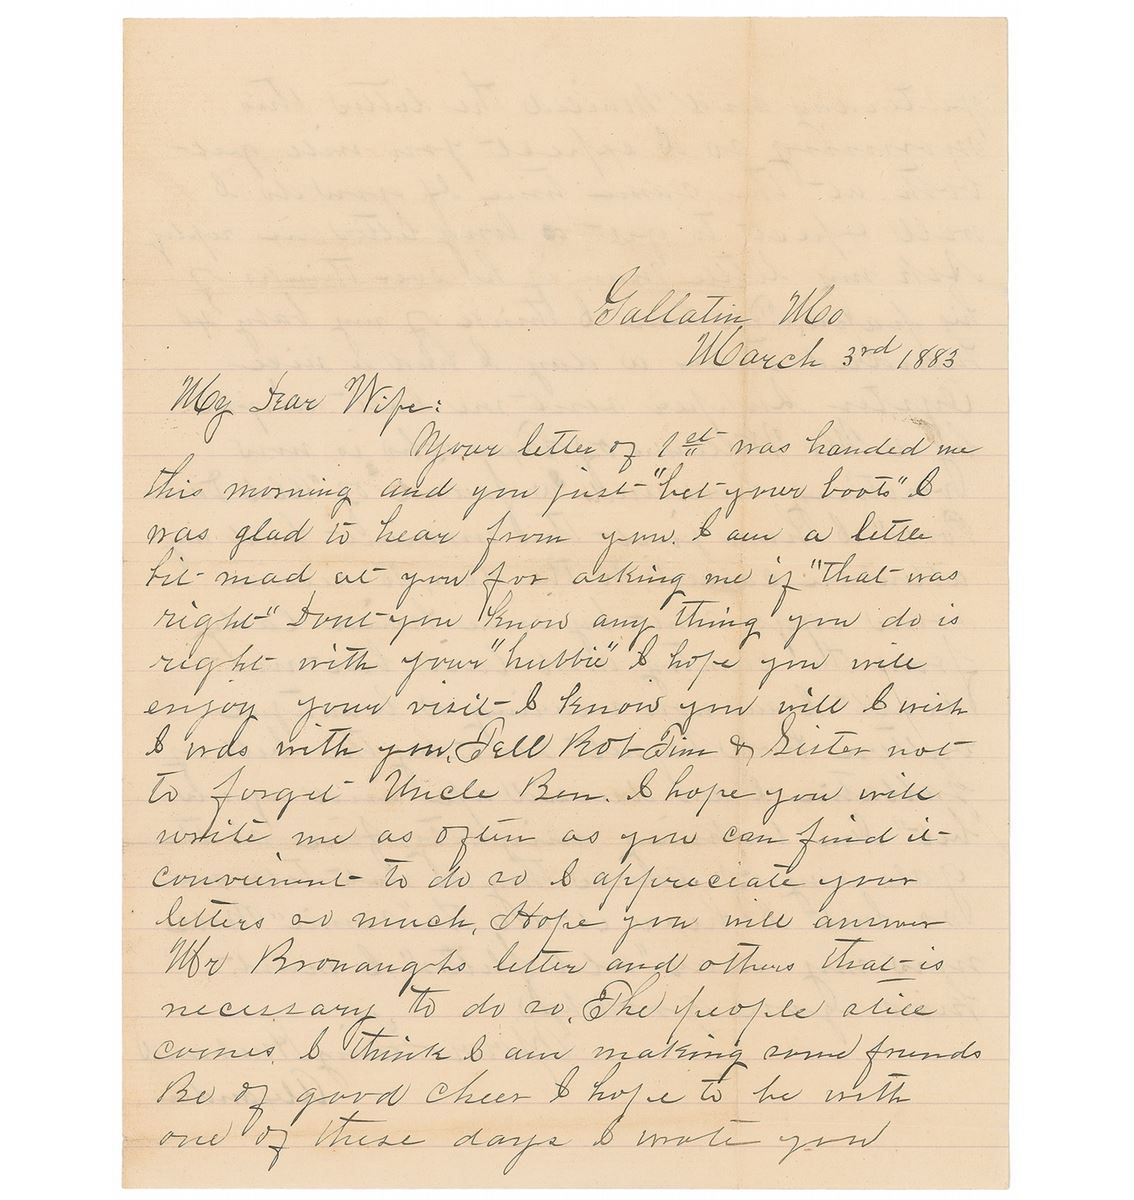 Gallatin Mo
March 3rd 1883
My Dear Wife:
Your letter of 1st was handed me
this morning and you just "bet your boots" I
was glad to hear from you. I am a little
bit mad at you for asking me if "that was
right" Dont you know any thing you do is
right with your "hubbie" I hope you will
enjoy your visit I know you will I wish
I was with you. Tell Rob Tim & Sister not
to forget Uncle Ben. I hope you will
write me as often as you can find it
convienent to do so I appreciate your
letters so much. Hope you will answer
Mr Bronaughs letter and others that is
necessary to do so. The people still
comes I think I am making some friends
Be of good cheer I hope to be with
one of these days I wrote you